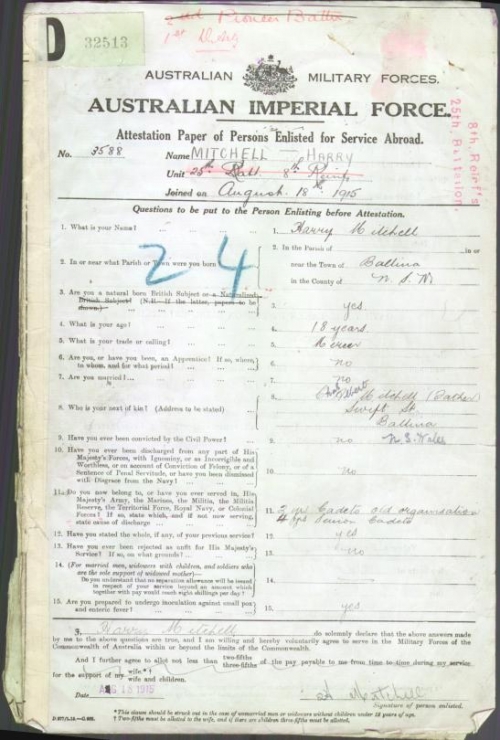 2nd Pioneer Battn
1st
D 32513
AUSTRALIAN MILITARY FORCES.
AUSTRALIAN IMPERIAL FORCE.
Attestation Paper of Persons Enlisted for Service Abroad.
No. 3588 Name MITCHELL HARRY
Unit 25th Batt 8th Reinf
Joined on August 18th 1915
8th Reinf's
25th Battalion.
Questions to be put to the Person Enlisting before Attestation.
1. What is your Name? 1. Harry Mitchell
2. In or near what Parish or Town were you born 2. In the Parish of in or
near the Town of Ballina
in the County of N.S.W
24
3. Are you a natural born British Subject or a Naturalised
British Subject? (N.B.—If the latter, papers to be
shown.) 3. yes.
4. What is your age? 4. 18 years.
5. What is your trade or calling? 5.
6. Are you, or have you been, an Apprentice? If so, where,
to whom, and for what period? 6. no
7. Are you married? 7. no
8. Who is your next of kin? (Address to be stated) 8. Mitchell (Father)
Swift St
Ballina
N.S. Wales
9. Have you ever been convicted by the Civil Power? 9. no
10. Have you ever been discharged from any part of His
Majesty's Forces, with Ignominy, or as Incorrigible and
Worthless, or on account of Conviction of Felony, or of a
Sentence of Penal Servitude, or have you been dismissed
with Disgrace from the Navy? 10. no
11. Do you now belong to, or have you ever served in, His
Majesty's Army, the Marines, the Militia, the Militia
Reserve, the Territorial Force, Royal Navy, or Colonial
Forces? If so, state which, and if not now serving,
state cause of discharge 11. Cadets old organisation
Senior Cadets
12. Have you stated the whole, if any, of your previous service? 12. yes
13. Have you ever been rejected as unfit for His Majesty's
Service? If so, on what grounds? 13. no
14. (For married men, widowers with children, and soldiers who
are the sole support of widowed mother)—
Do you understand that no separation allowance will be issued
in respect of your service beyond an amount which
together with pay would reach eight shillings per day? 14.
15. Are you prepared to undergo inoculation against small pox
and enteric fever? 15. yes
I, Harry Mitchell do solemnly declare that the above answers made
by me to the above questions are true, and I am willing and hereby voluntarily agree to serve in the Military Forces of the
Commonwealth of Australia within or beyond the limits of the Commonwealth.
And I further agree to allot not less than two-fifths three-fifths of the pay payable to me from time to time during my service
for the support of my wife.* † wife and children.
Date AUG 18 1915 H Mitchell
Signature of person enlisted.
* This clause should be struck out in the case of unmarried men or widowers without children under 18 years of age.
† Two-fifths must be allotted to the wife, and if there are children three-fifths must be allotted.